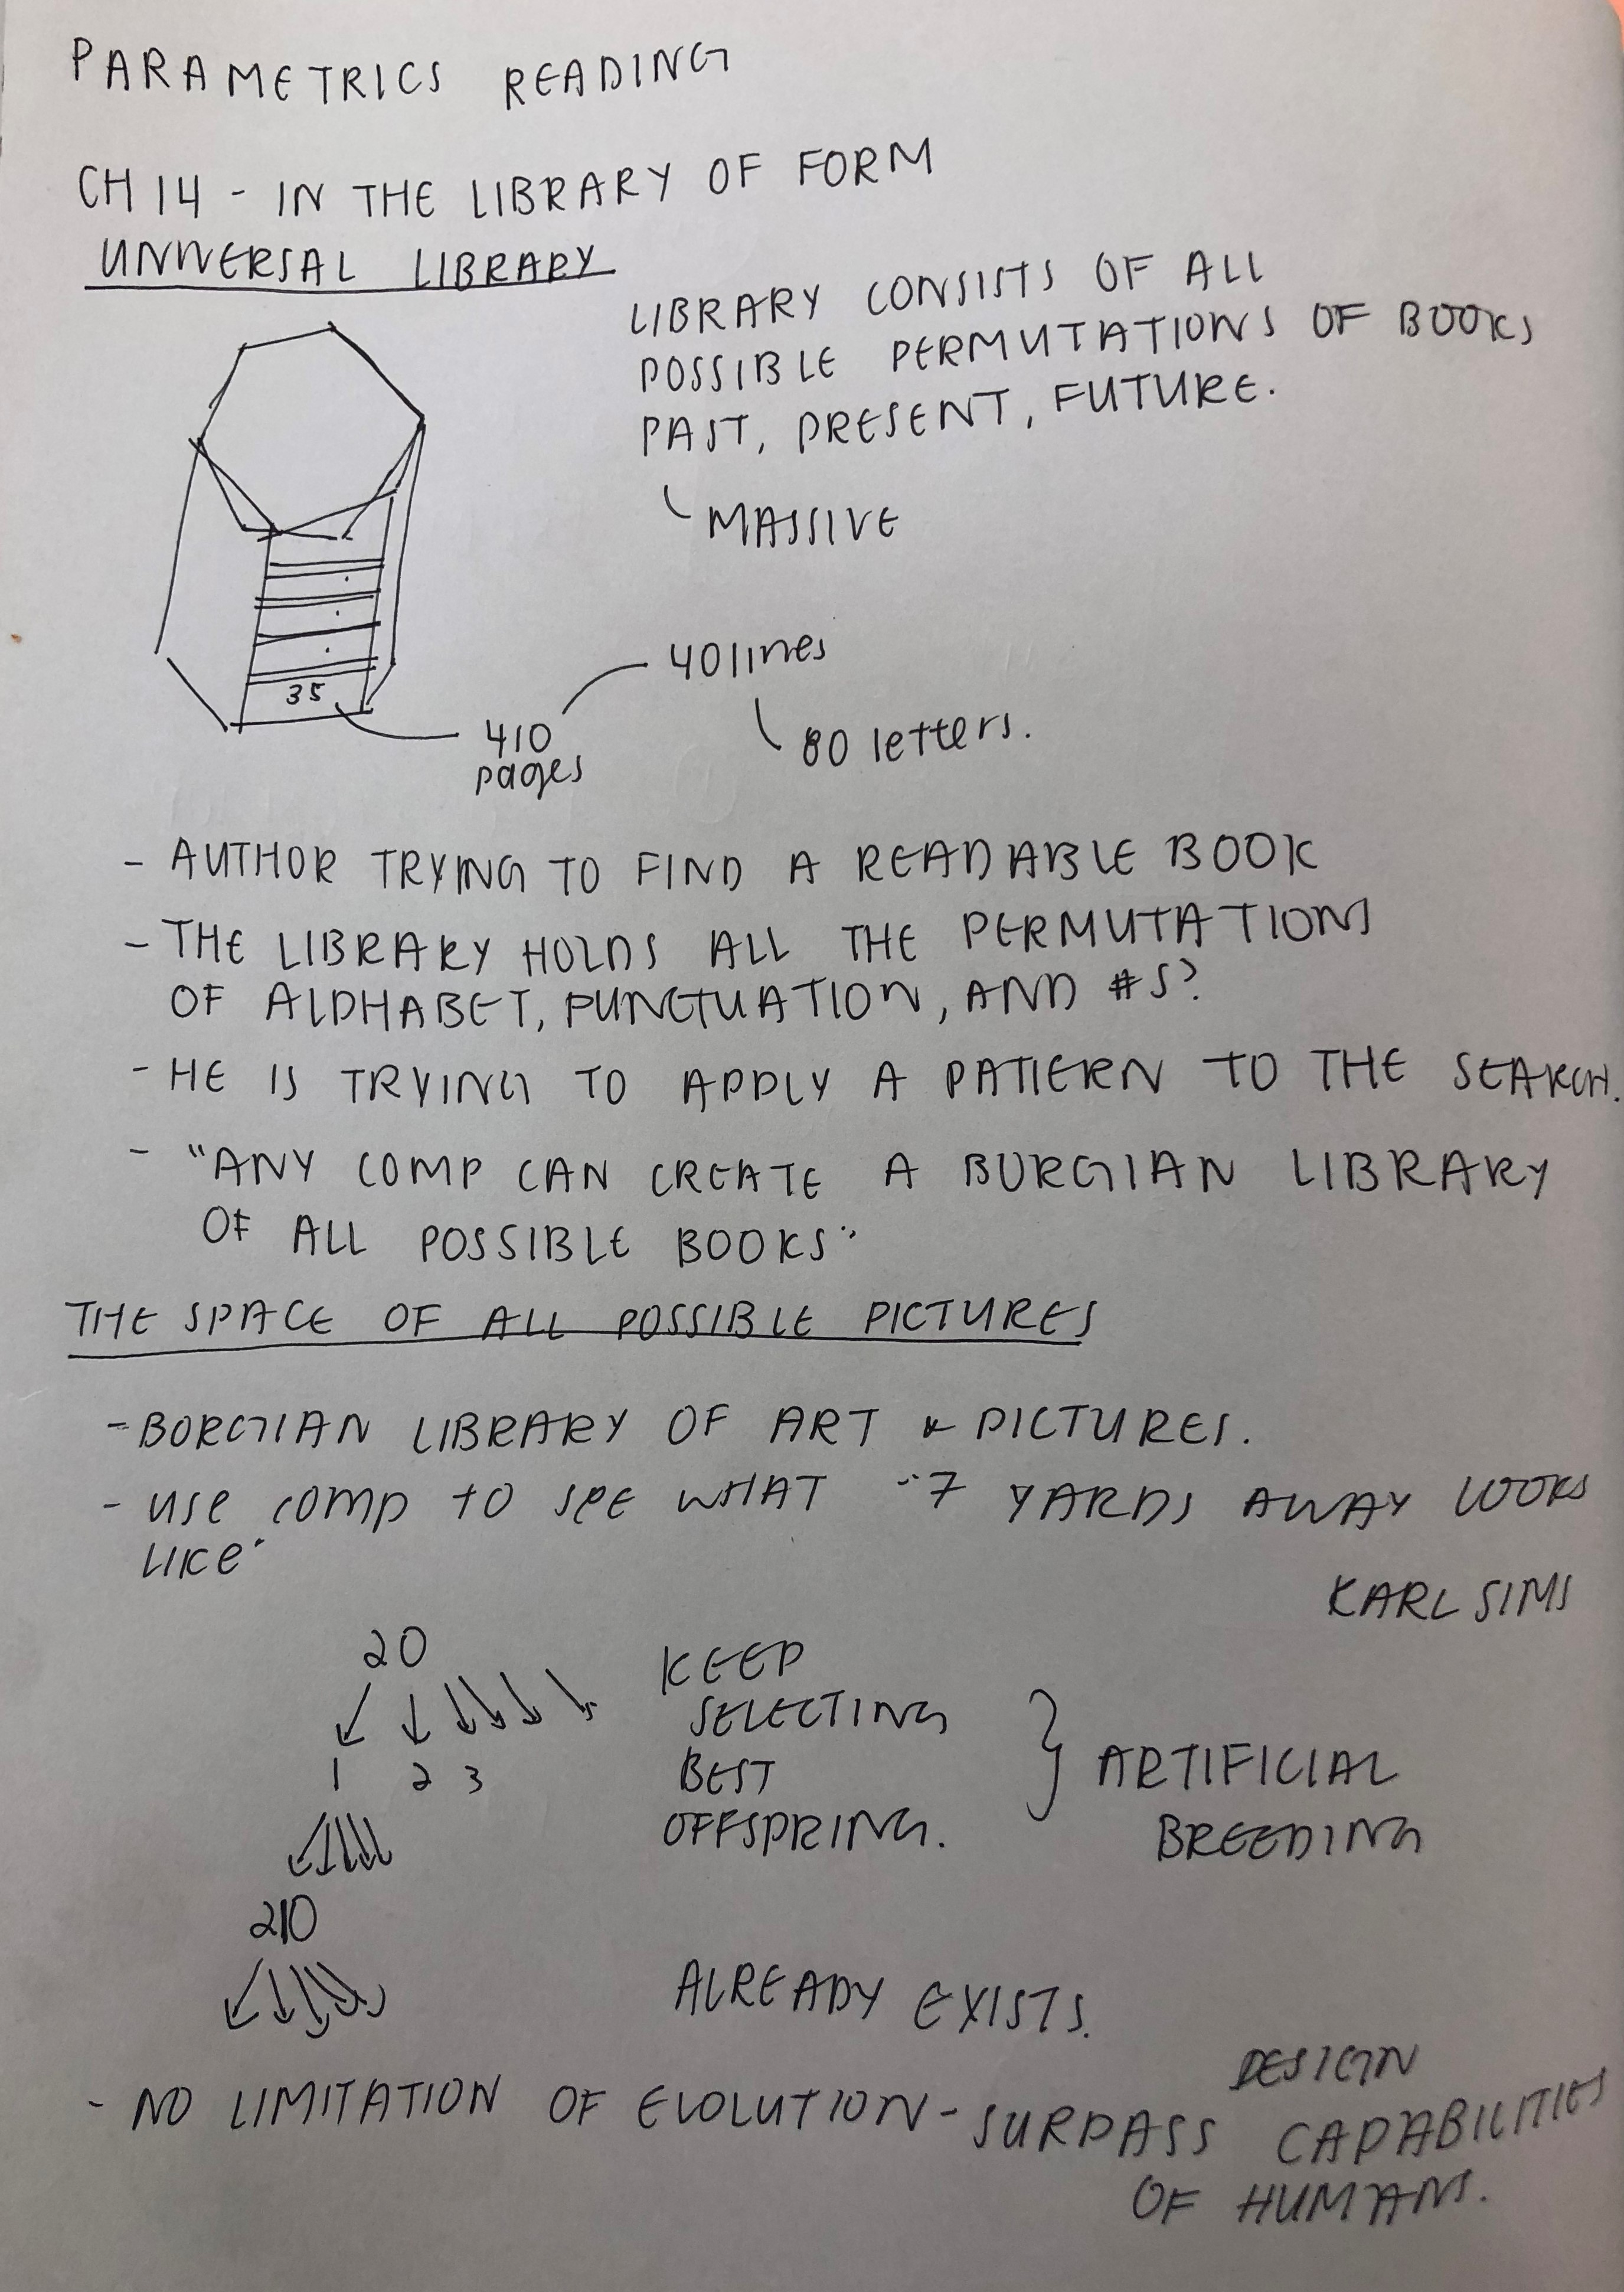 PARAMETRICS READING
CH 14 - IN THE LIBRARY OF FORM
UNIVERSAL LIBRARY
LIBRARY CONSISTS OF ALL
POSSIBLE PERMUTATIONS OF BOOKS
PAST, PRESENT, FUTURE.
MASSIVE
35
410
pages
40 lines
80 letters.
- AUTHOR TRYING TO FIND A READABLE BOOK
- THE LIBRARY HOLDS ALL THE PERMUTATIONS
OF ALPHABET, PUNCTUATION, AND #S?
- HE IS TRYING TO APPLY A PATTERN TO THE SEARCH.
- "ANY COMP CAN CREATE A BORGIAN LIBRARY
OF ALL POSSIBLE BOOKS"
THE SPACE OF ALL POSSIBLE PICTURES
- BORGIAN LIBRARY OF ART & PICTURES.
- use comp to see WHAT "7 YARDS AWAY LOOKS
LIKE"
KARL SIMS
20
1 2 3
KEEP
SELECTING
BEST
OFFSPRING.
ARTIFICIAL
BREEDING
ALREADY EXISTS.
- NO LIMITATION OF EVOLUTION - SURPASS DESIGN CAPABILITIES
OF HUMANS.